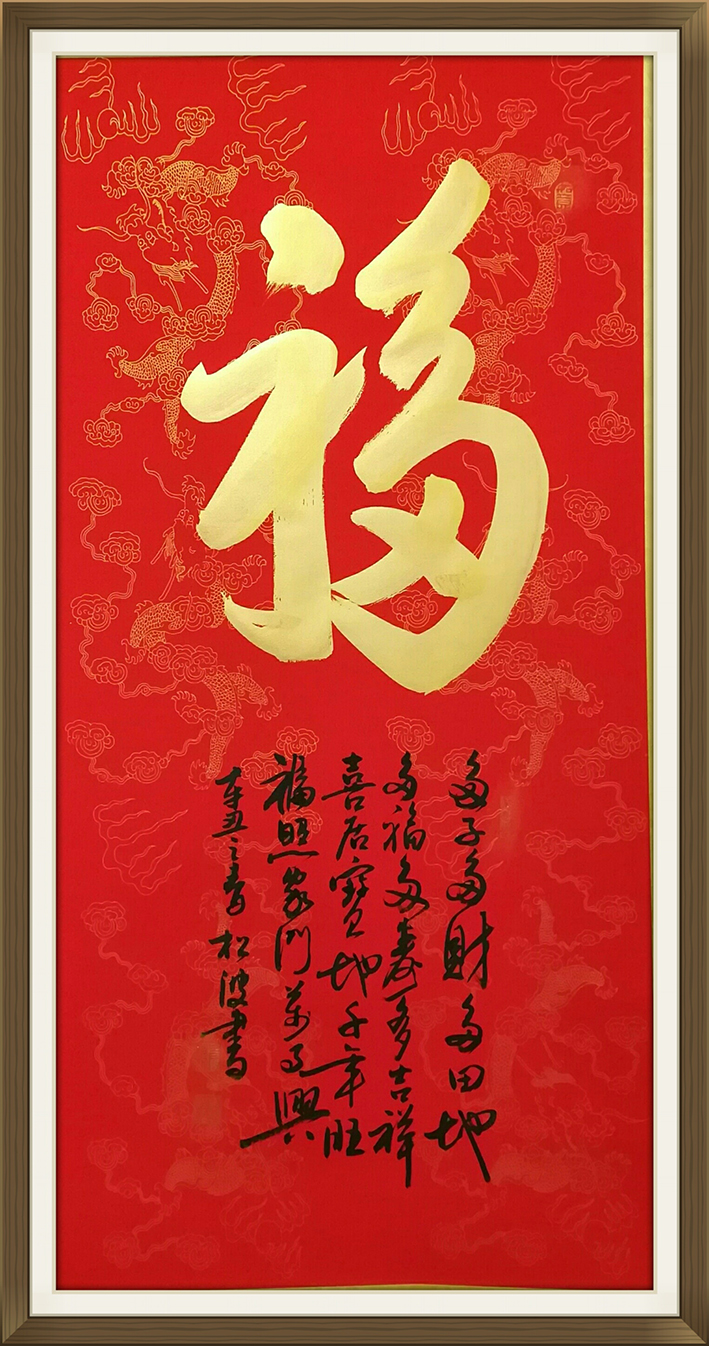 福
多子多財多田地
多福多壽多吉祥
喜居寶地千年旺
福照家門萬事興
辛丑之春 松波書